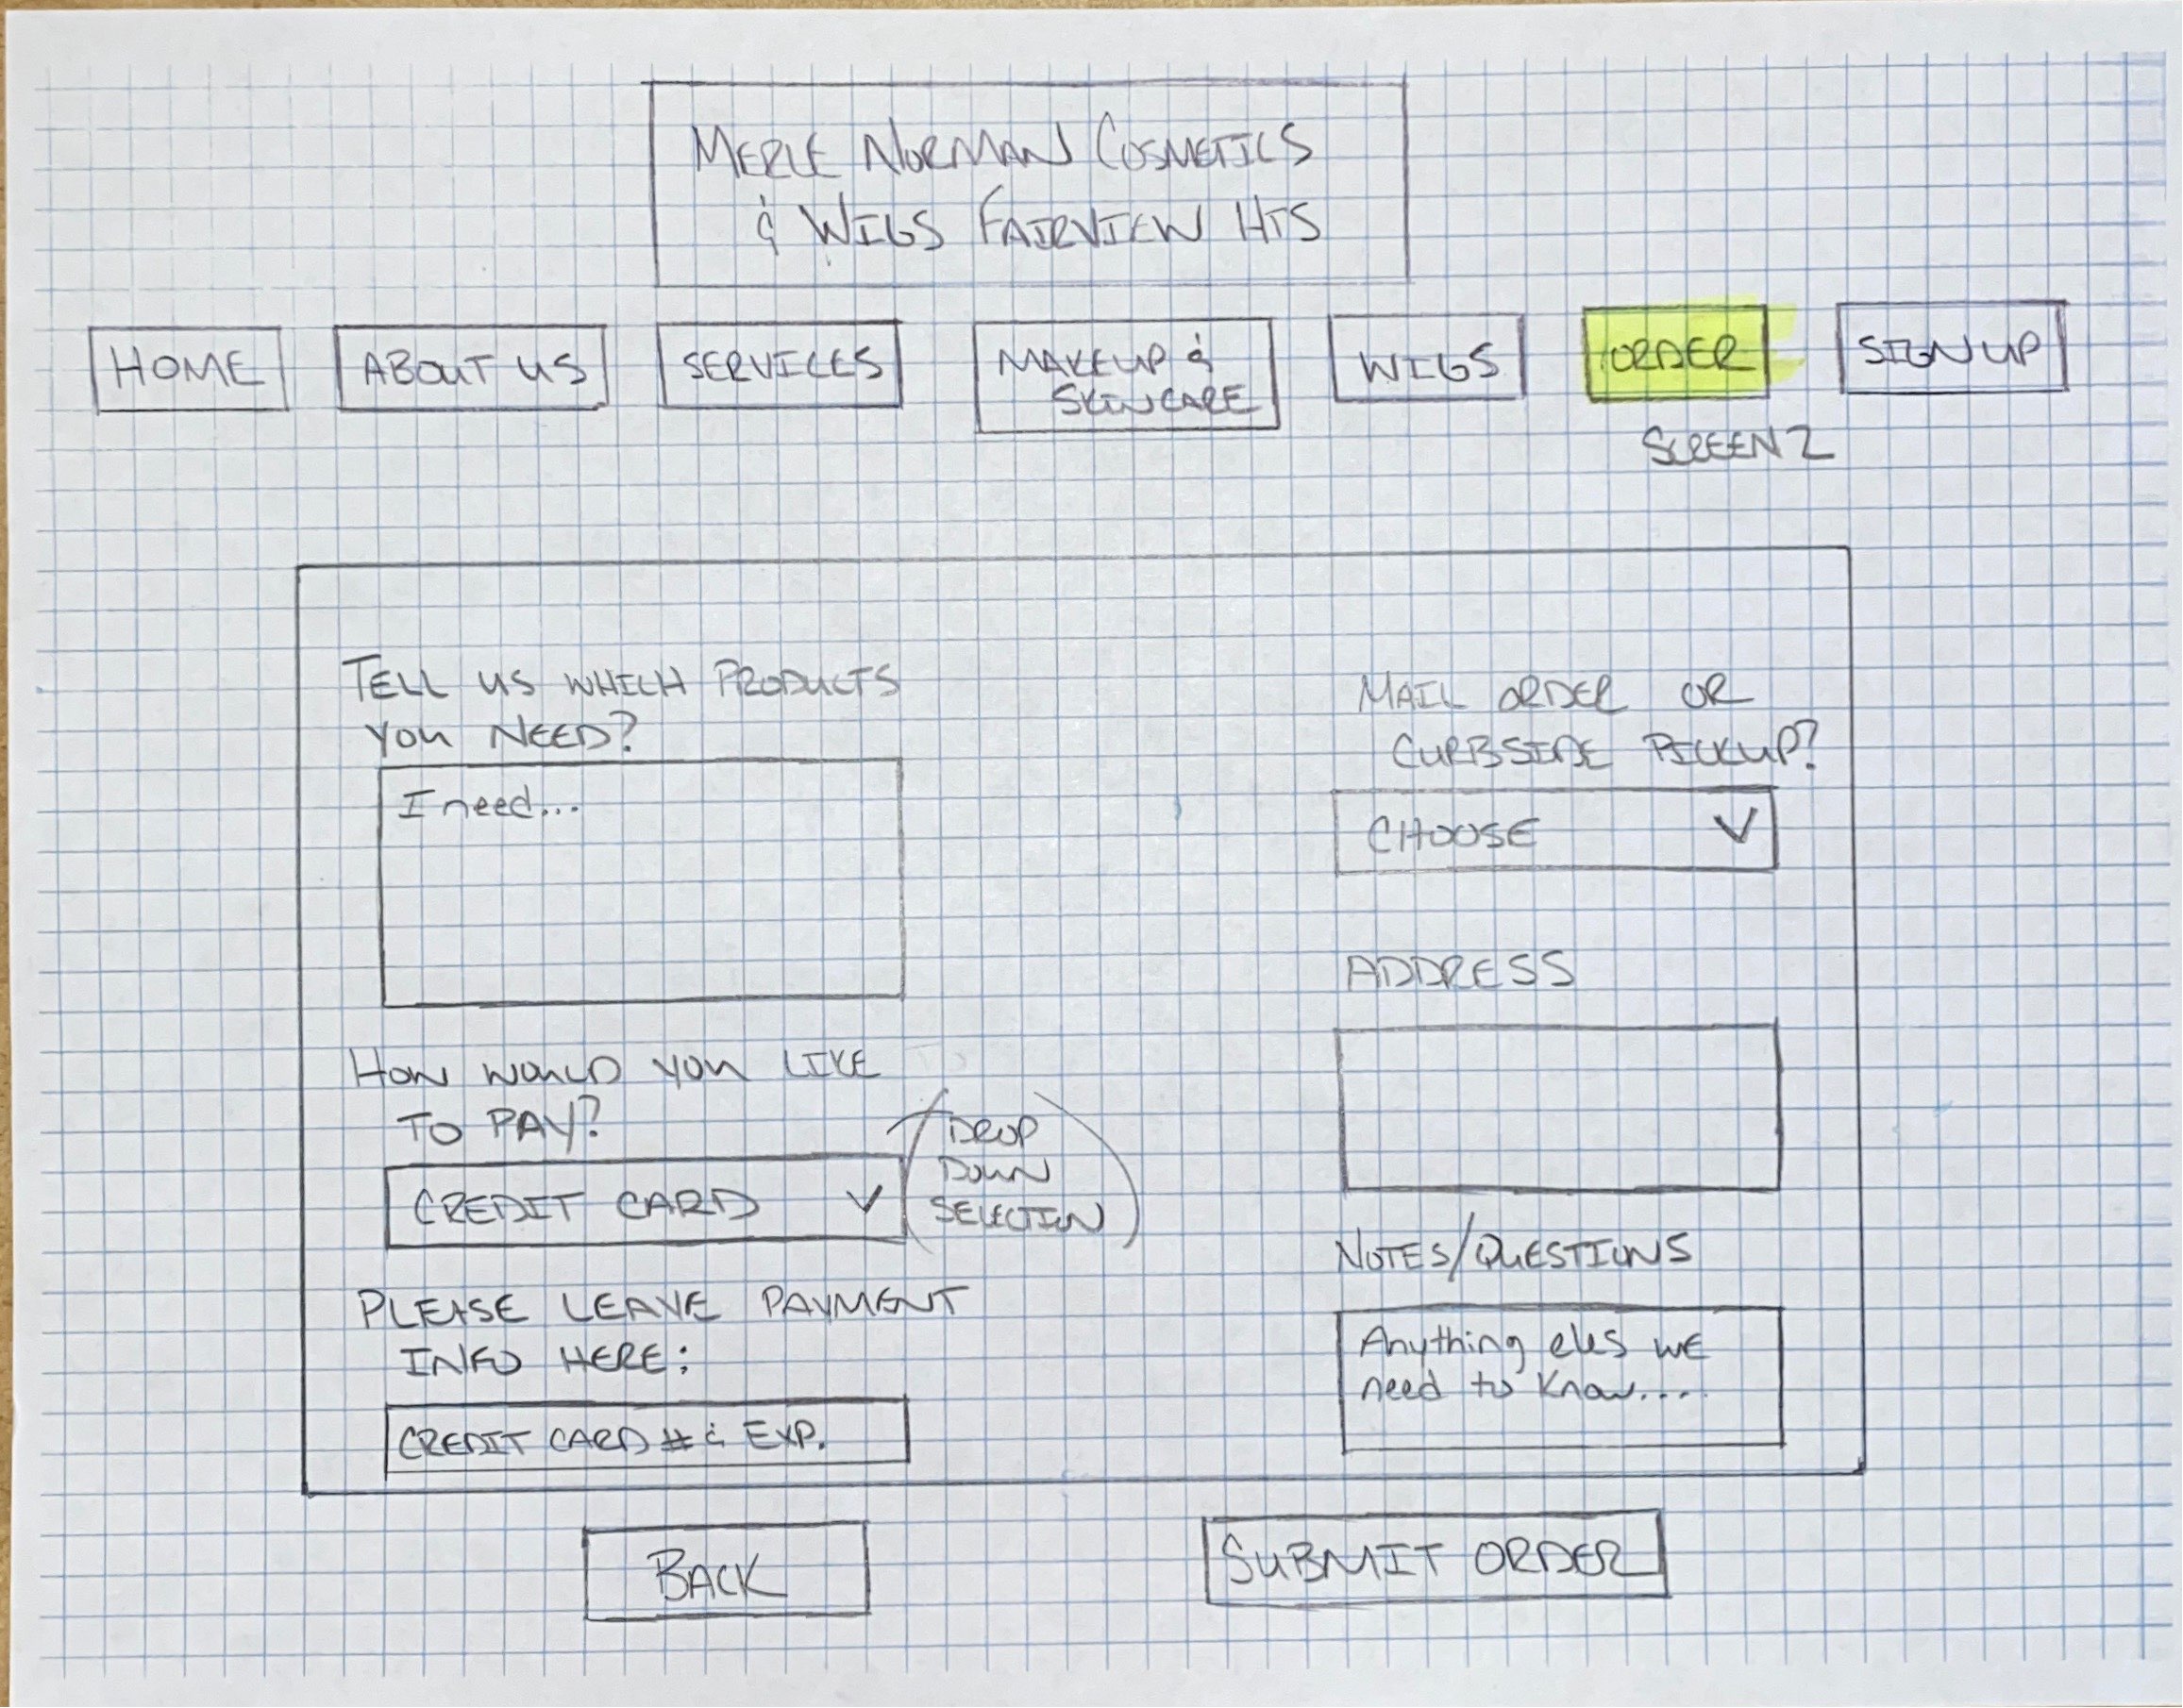 MERLE NORMAN COSMETICS
& WIGS FAIRVIEW HTS
HOME
ABOUT US
SERVICES
MAKEUP &
SKINCARE
WIGS
ORDER
SIGN UP
SCREEN 2
TELL US WHICH PRODUCTS
YOU NEED?
I need...
HOW WOULD YOU LIKE
TO PAY?
CREDIT CARD V
DROP
DOWN
SELECTION
PLEASE LEAVE PAYMENT
INFO HERE:
CREDIT CARD # & EXP.
MAIL ORDER OR
CURBSIDE PICKUP?
CHOOSE V
ADDRESS
NOTES/QUESTIONS
Anything eles WE
need to know....
BACK
SUBMIT ORDER